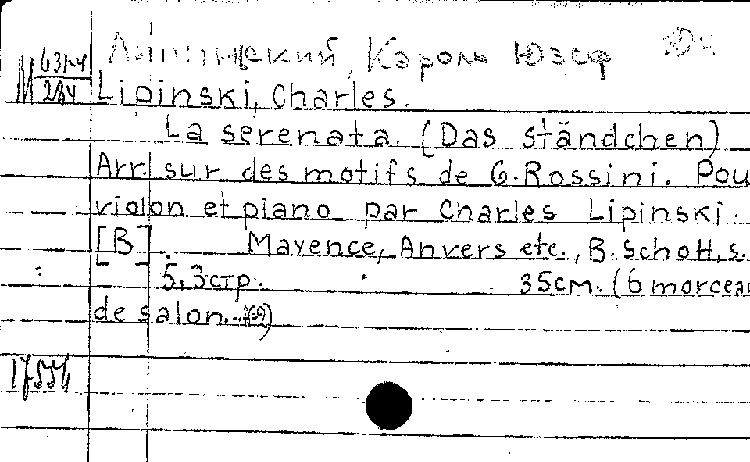 Липинский, Кароль Юзеф
M 63 14
Lipinski, Charles.
La serenata. (Das ständchen)
Arr. sur des motifs de G. Rossini. Pou
violon et piano par Charles Lipinski.
[B]. Mayence, Anvers etc., B. Schott, s.
5, 3 стр. 35 см. (6 morceau
de salon.